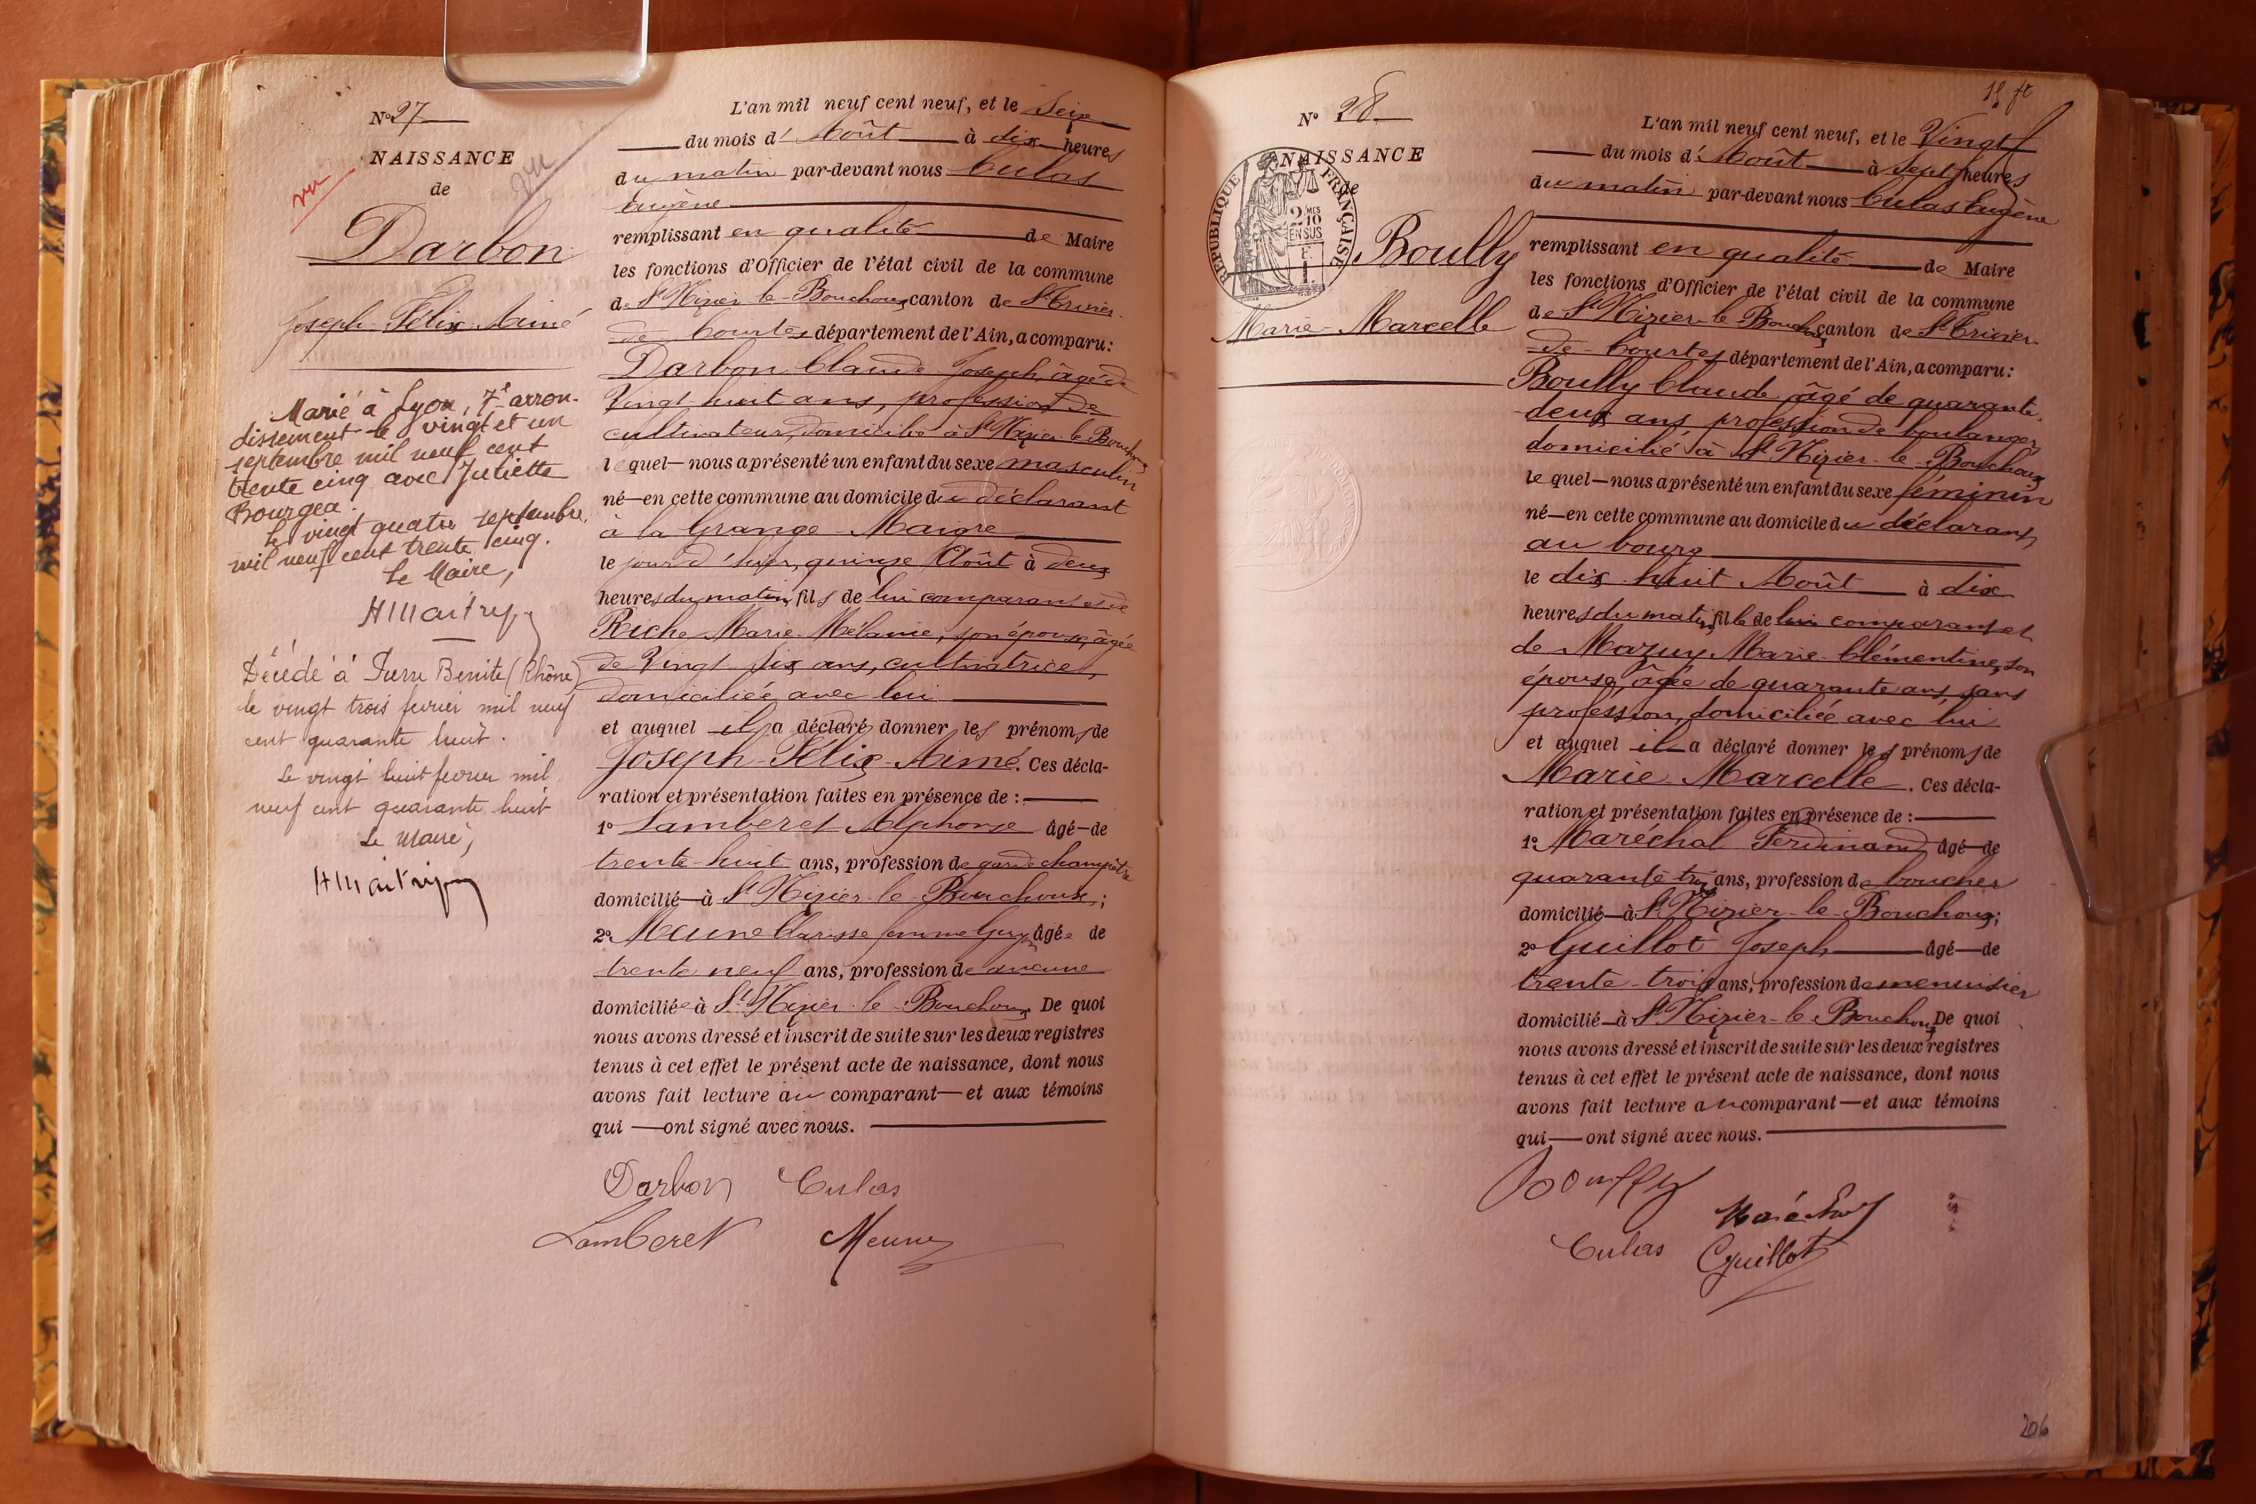 Nº 27
NAISSANCE
de
vu
vu
Darbon
Joseph Félix Aimé
Marié à Lyon, 7e arron-
dissement le vingt et un
septembre mil neuf cent
trente cinq avec Juliette
Bourgea.
Le vingt quatre septembre
mil neuf cent trente cinq.
Le Maire,
Décédé à Pierre Bénite (Rhône)
le vingt trois fevrier mil neuf
cent quarante huit.
Le vingt huit fevrier mil
neuf cent quarante huit
Le Maire,
L'an mil neuf cent neuf, et le Seize
du mois d'Août à dix heures
du matin par-devant nous Culas
Eugène
remplissant en qualité de Maire
les fonctions d'Officier de l'état civil de la commune
de St Nizier-le-Bouchoux canton de St Trivier-
de-Courtes département de l'Ain, a comparu:
Darbon Claude Joseph, âgé de
Vingt huit ans, profession de
cultivateur, domicilié à St Nizier-le-Bouchoux
lequel nous a présenté un enfant du sexe masculin
né en cette commune au domicile du déclarant
à la Grange Maigre
le jour d'hier, quinze Août à deux
heures du matin, fils de lui comparant et de
Riche Marie-Mélanie, son épouse, âgée
de Vingt six ans, cultivatrice,
domiciliée avec lui
et auquel il a déclaré donner les prénoms de
Joseph-Félix-Aimé. Ces décla-
ration et présentation faites en présence de :
1º Lamberet Alphonse âgé de
trente-huit ans, profession de garde champêtre
domicilié à St Nizier-le-Bouchoux;
2º Meune Clarisse femme Guy âgée de
trente neuf ans, profession de aucune
domiciliée à St Nizier-le-Bouchoux De quoi
nous avons dressé et inscrit de suite sur les deux registres
tenus à cet effet le présent acte de naissance, dont nous
avons fait lecture au comparant et aux témoins
qui ont signé avec nous.
Darbon Culas
Lamberet Meune
18 ft
Nº 28
NAISSANCE
de
RÉPUBLIQUE FRANÇAISE
2/10
MES
EN SUS
Boully
Marie-Marcelle
L'an mil neuf cent neuf, et le Vingt
du mois d'Août à Sept heures
du matin par-devant nous Culas Eugène
remplissant en qualité de Maire
les fonctions d'Officier de l'état civil de la commune
de St Nizier-le-Bouchoux canton de St Trivier-
de-Courtes département de l'Ain, a comparu:
Boully Claude âgé de quarante-
deux ans profession de boulanger
domicilié à St Nizier-le-Bouchoux
lequel nous a présenté un enfant du sexe féminin
né en cette commune au domicile du déclarant,
au bourg
le dix-huit Août à dix
heures du matin, fille de lui comparant et
de Mazuy Marie-Clémentine, son
épouse, âgée de quarante ans, sans
profession, domiciliée avec lui
et auquel il a déclaré donner les prénoms de
Marie-Marcelle. Ces décla-
ration et présentation faites en présence de :
1º Maréchal Ferdinand âgé de
quarante-trois ans, profession de boucher
domicilié à St Nizier-le-Bouchoux;
2º Guillot Joseph âgé de
trente-trois ans, profession de menuisier
domicilié à St Nizier-le-Bouchoux De quoi
nous avons dressé et inscrit de suite sur les deux registres
tenus à cet effet le présent acte de naissance, dont nous
avons fait lecture au comparant et aux témoins
qui ont signé avec nous.
Boully
Maréchal
Culas Guillot
206